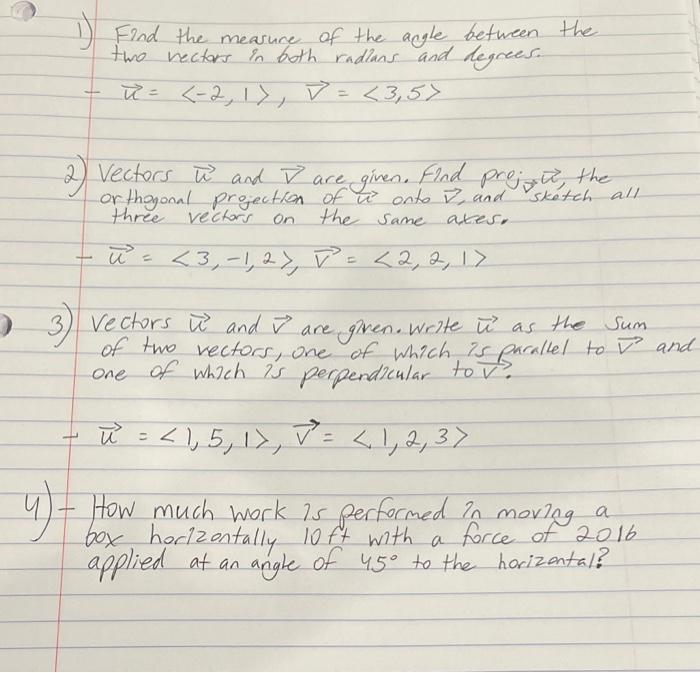 1) Find the measure of the angle between the
two vectors in both radians and degrees.
- u⃗ = <-2, 1>, v⃗ = <3,5>
2) Vectors u⃗ and v⃗ are given. Find proj_v⃗ u⃗, the
orthogonal projection of u⃗ onto v⃗, and sketch all
three vectors on the same axes.
- u⃗ = <3, -1, 2>, v⃗ = <2, 2, 1>
3) Vectors u⃗ and v⃗ are given. Write u⃗ as the sum
of two vectors, one of which is parallel to v⃗ and
one of which is perpendicular to v⃗.
- u⃗ = <1, 5, 1>, v⃗ = <1, 2, 3>
4) - How much work is performed in moving a
box horizontally 10 ft with a force of 20lb
applied at an angle of 45° to the horizontal?